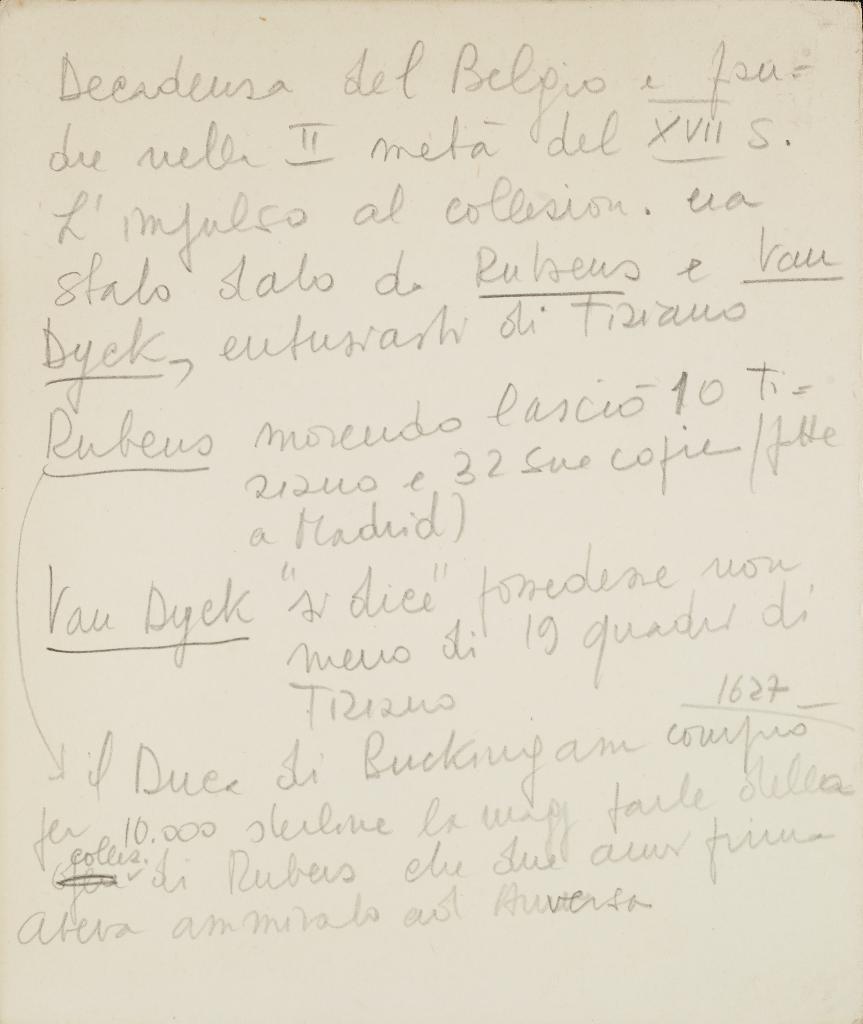 Decadenza del Belgio e fian=
dre nella II metà del XVII s.
L'impulso al collezion. era
stato dato da Rubens e Van
Dyck, entusiasti di Tiziano
Rubens morendo lasciò 10 Ti=
ziano e 32 sue copie (fatte
a Madrid)
Van Dyck "si dice" possedesse non
meno di 19 quadri di
Tiziano
1627
il Duca di Buckingam comprò
per 10.000 sterline la magg parte della
colliz. di Rubens che due anni prima
aveva ammirato ad Anversa